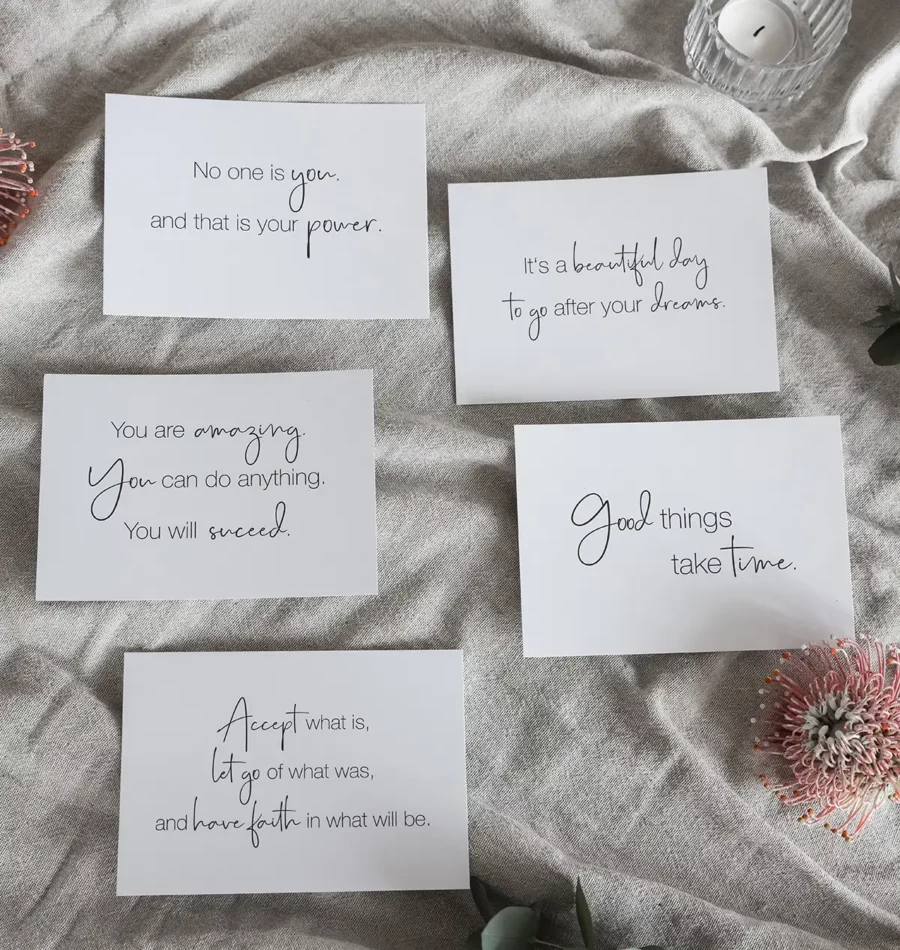 No one is you.
and that is your power.
It's a beautiful day
to go after your dreams.
You are amazing.
You can do anything.
You will succeed.
Good things
take time.
Accept what is,
let go of what was,
and have faith in what will be.